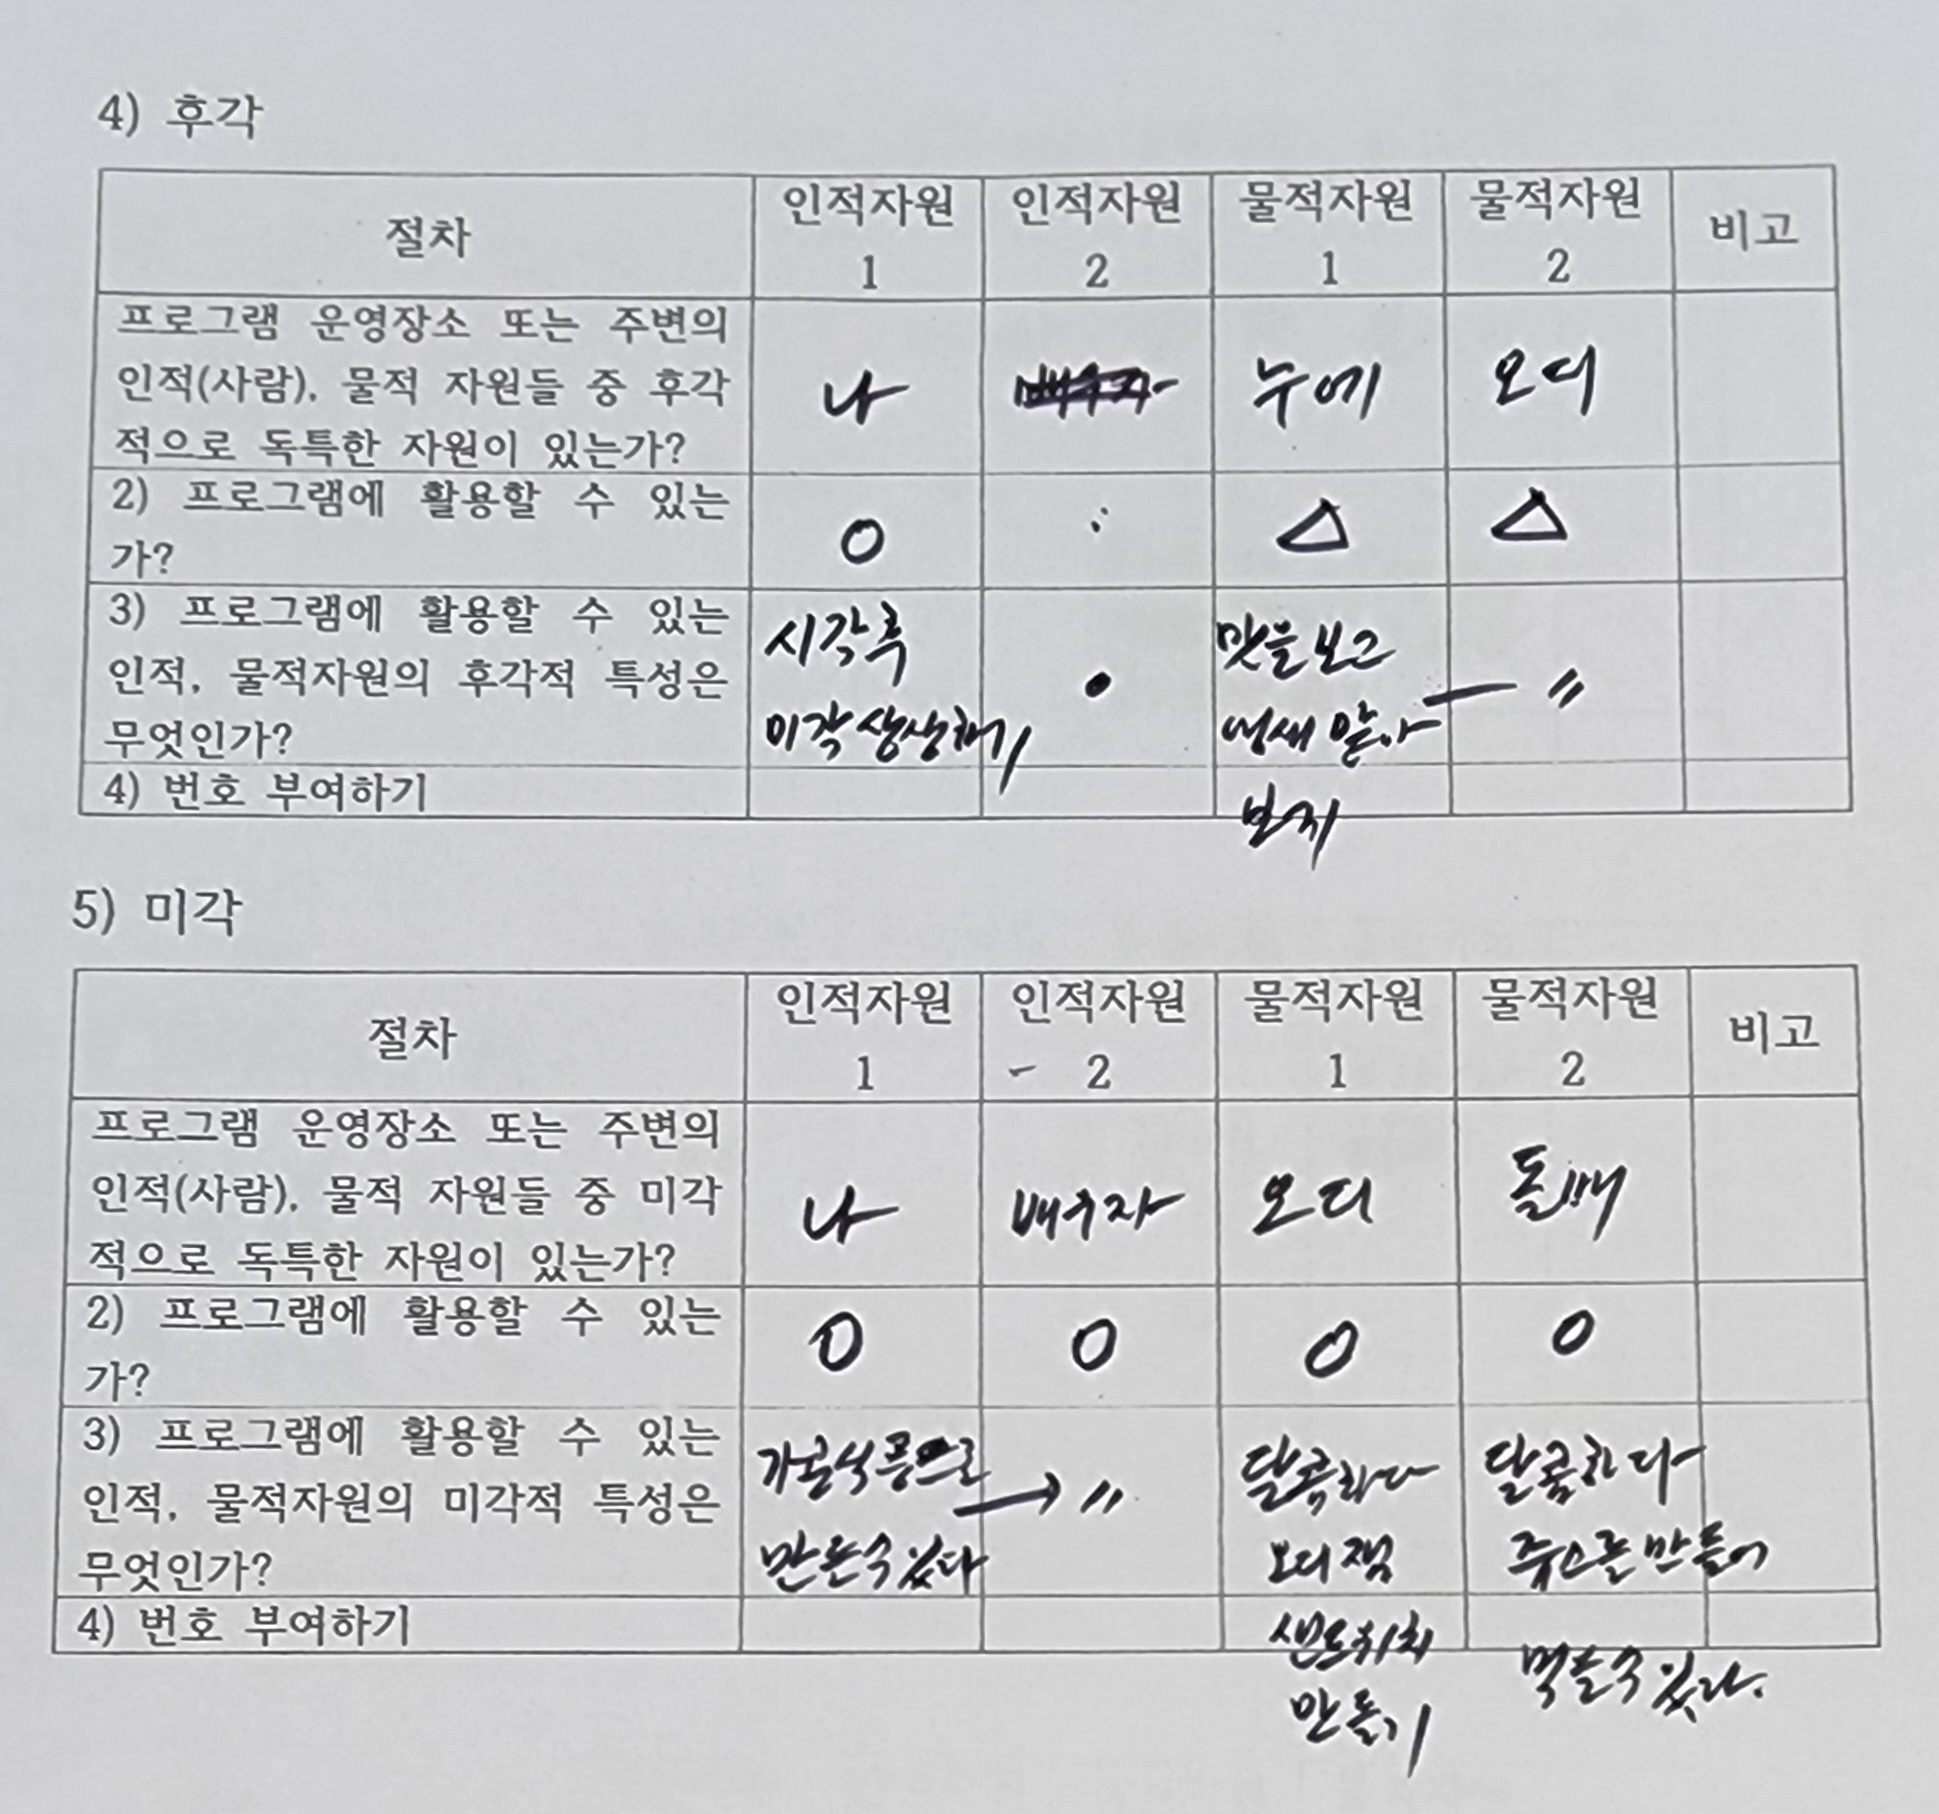 4) 후각
절차 인적자원 1 인적자원 2 물적자원 1 물적자원 2 비고
프로그램 운영장소 또는 주변의
인적(사람), 물적 자원들 중 후각
적으로 독특한 자원이 있는가?
나 배우자 누에 오디
2) 프로그램에 활용할 수 있는
가?
○ △ △
3) 프로그램에 활용할 수 있는
인적, 물적자원의 후각적 특성은
무엇인가?
시각후
미각 생생하게
맛을 보고
냄새 맡아
보기
〃
4) 번호 부여하기
5) 미각
절차 인적자원 1 인적자원 2 물적자원 1 물적자원 2 비고
프로그램 운영장소 또는 주변의
인적(사람), 물적 자원들 중 미각
적으로 독특한 자원이 있는가?
나 배우자 오디 돌배
2) 프로그램에 활용할 수 있는
가?
○ ○ ○ ○
3) 프로그램에 활용할 수 있는
인적, 물적자원의 미각적 특성은
무엇인가?
가공식품으로
만들수있다
→ 〃
달콤하다
오디 잼
샌드위치
만들기
달콤하다
쥬스를 만들어
먹을수 있다.
4) 번호 부여하기